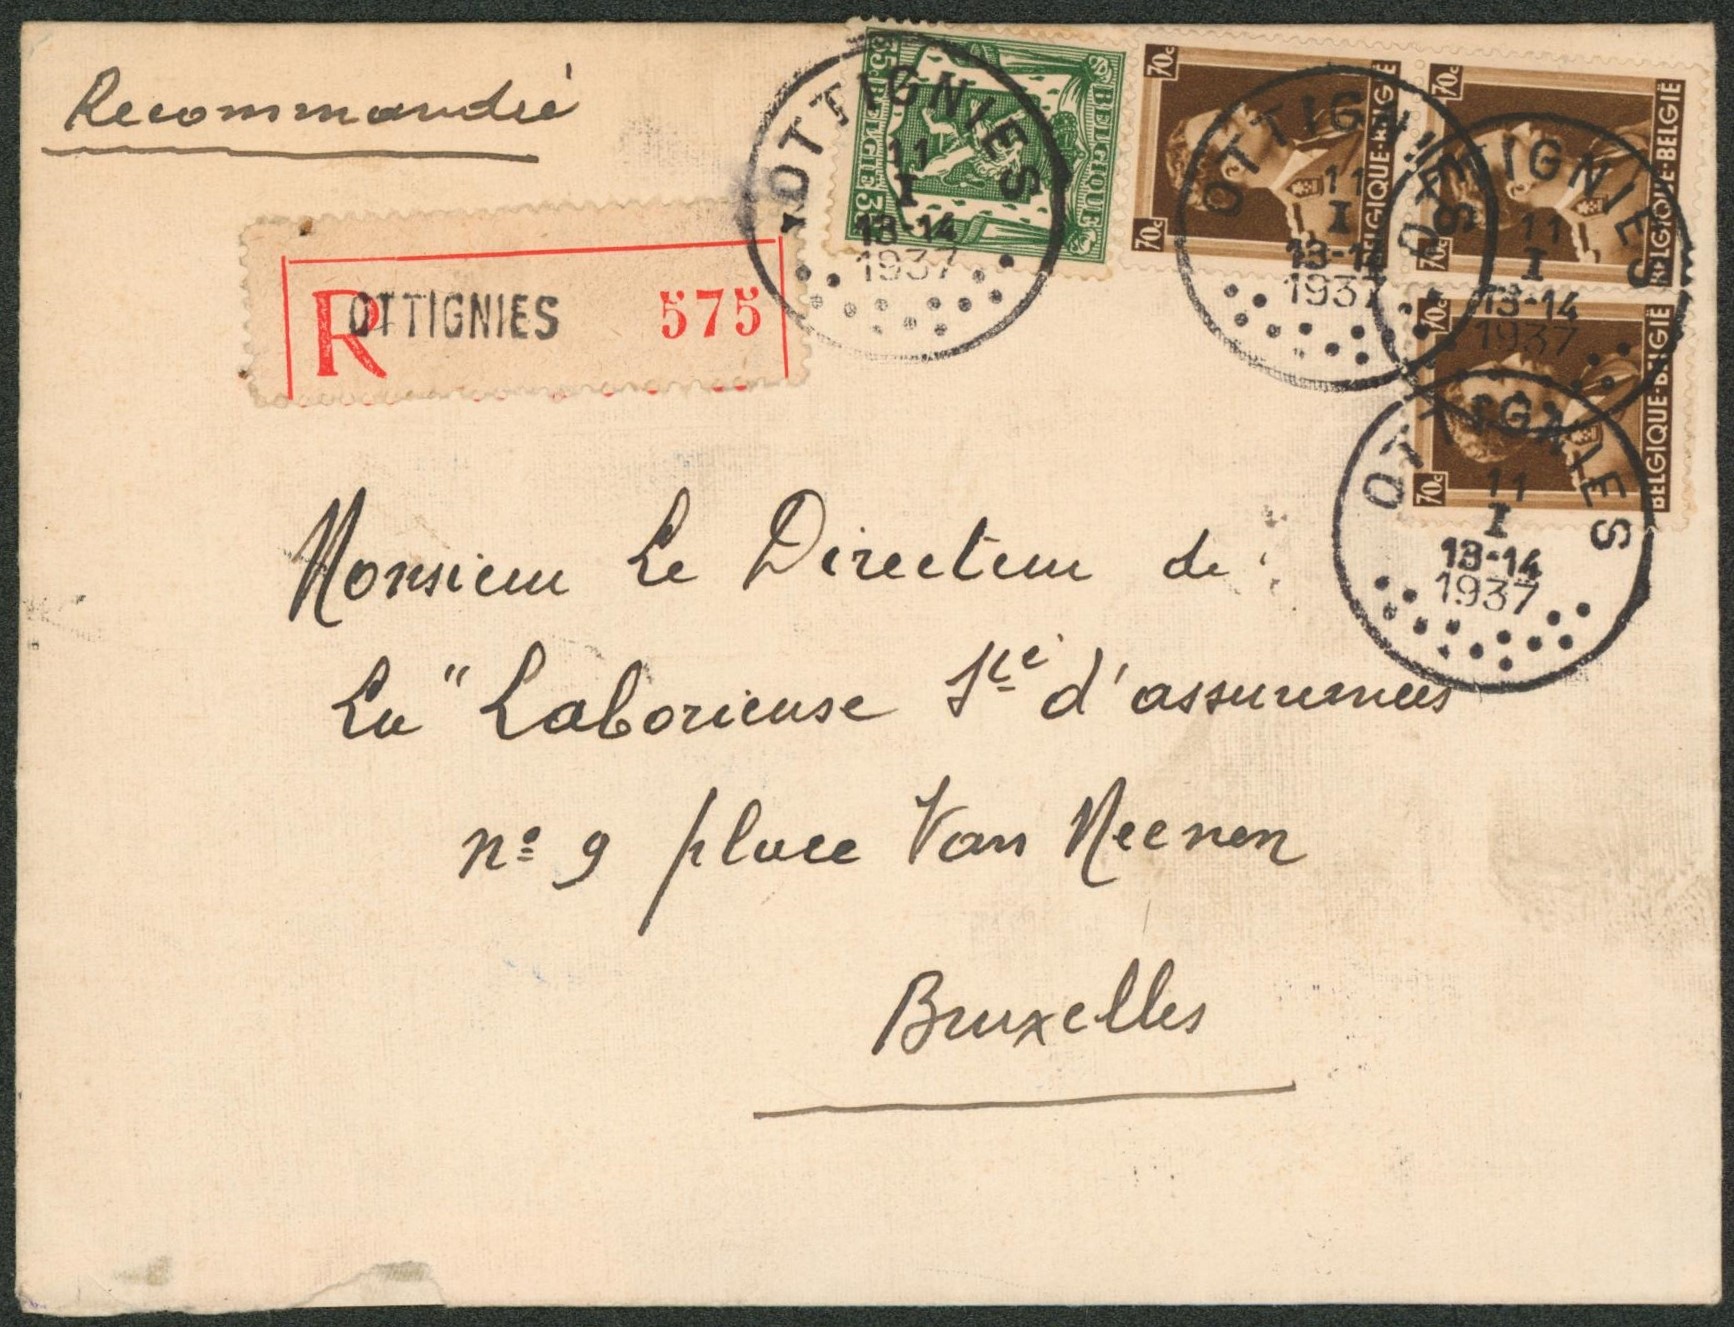 Recommandé
R OTTIGNIES 575
35c BELGIE 35c BELGIQUE
OTTIGNIES
11
I
13-14
1937
70c 70c BELGIQUE-BELGIË
OTTIGNIES
11
I
13-14
1937
70c 70c BELGIQUE-BELGIË
OTTIGNIES
11
I
13-14
1937
70c 70c BELGIQUE-BELGIË
OTTIGNIES
11
I
13-14
1937
Monsieur Le Directeur de
La " Laborieuse Sté d'assurances
n° 9 place Van Meenen
Bruxelles